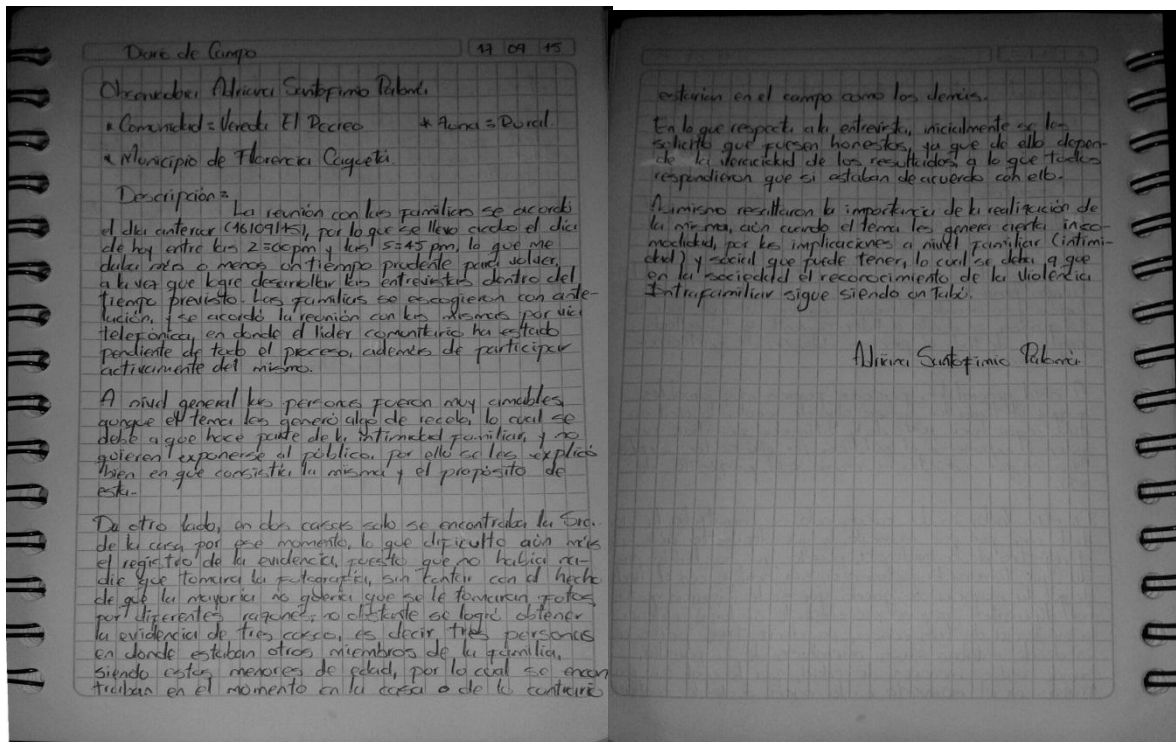 Diario de Campo 17 09 15
Observador: Adriana Santofimio Palomá.
* Comunidad = Vereda El Recreo * Zona = Rural.
* Municipio de Florencia Caquetá.
Descripción =
La reunión con las familias se acordó
el día anterior (16/09/15), por lo que se llevo acabo el día
de hoy entre las 2=00 pm y las 5=45 pm, lo que me
daba más o menos un tiempo prudente para volver,
a la vez que logre desarrollar las entrevistas dentro del
tiempo previsto. Las familias se escogieron con ante-
lación, y se acordó la reunión con las mismas por vía
telefónica, en donde el líder comunitario ha estado
pendiente de todo el proceso, además de participar
activamente del mismo.
A nivel general las personas fueron muy amables
aunque el tema les generó algo de recelo, lo cual se
debe a que hace parte de la intimidad familiar, y no
quieren exponerse al público, por ello se les explicó
bien en que consistía la misma y el propósito de
esta.
De otro lado, en dos casos solo se encontraba la Sra.
de la casa por ese momento, lo que dificulto aún más
el registro de la evidencia, puesto que no había na-
die que tomara la fotografía, sin contar con el hecho
de que la mayoría no quería que se le tomaran fotos
por diferentes razones, no obstante se logró obtener
la evidencia de tres casos, es decir, tres personas
en donde estaban otros miembros de la familia,
siendo estos menores de edad, por lo cual se encon
traban en el momento en la casa o de lo contrario
estarían en el campo como los demás.
En lo que respecta a la entrevista, inicialmente se les
solicitó que fuesen honestos, ya que de ello depen-
de la veracidad de los resultados, a lo que todos
respondieron que si estaban de acuerdo con ello.
Asimismo resaltaron la importancia de la realización de
la misma, aún cuando el tema les genera cierta inco-
modidad, por las implicaciones a nivel familiar (intimi-
dad) y social que puede tener, lo cual se debe a que
en la sociedad el reconocimiento de la Violencia
Intrafamiliar sigue siendo un Tabú.
Adriana Santofimio Palomá